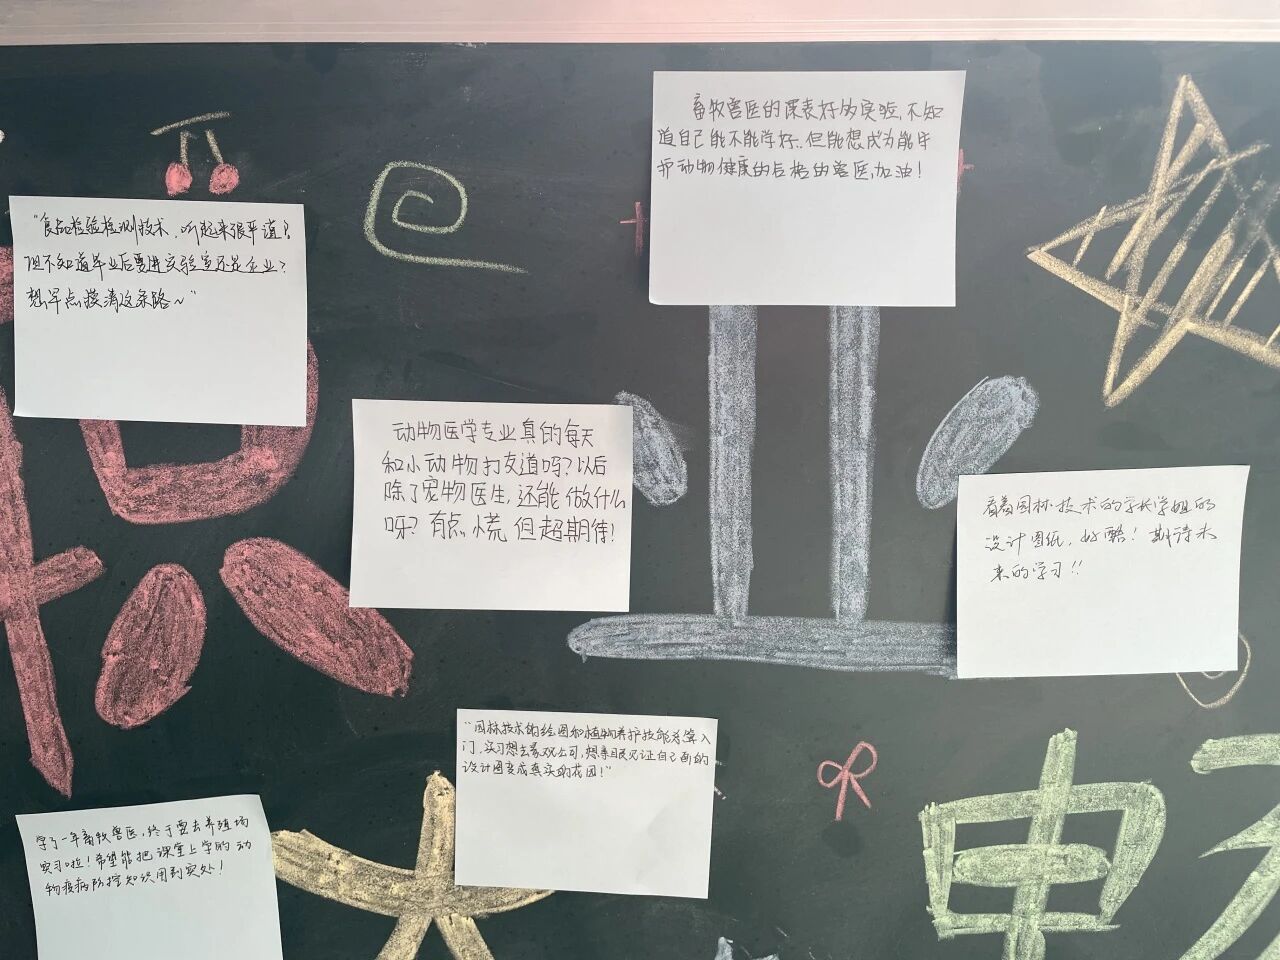 畜牧兽医的课表好多实验,不知
道自己能不能学好.但能想成为能守
护动物健康的后格的兽医,加油!
"食品检验检测技术,听起来很平值?
但不知道毕业后要进实验室还是企业?
想早点摸清这条路~"
动物医学专业真的每天
和小动物打交道吗?以后
除了宠物医生,还能做什么
呀?有点慌,但超期待!
看着园林技术的学长学姐的
设计图纸,好酷!期待未
来的学习!!
"园林技术的绘图和植物养护技能为算入
门,实习想去景观公司,想亲眼见证自己画的
设计图变成真实的花园!"
学了一年畜牧兽医,终于要去养殖场
实习啦!希望能把课堂上学的动
物疫病防控知识用到实处!
业